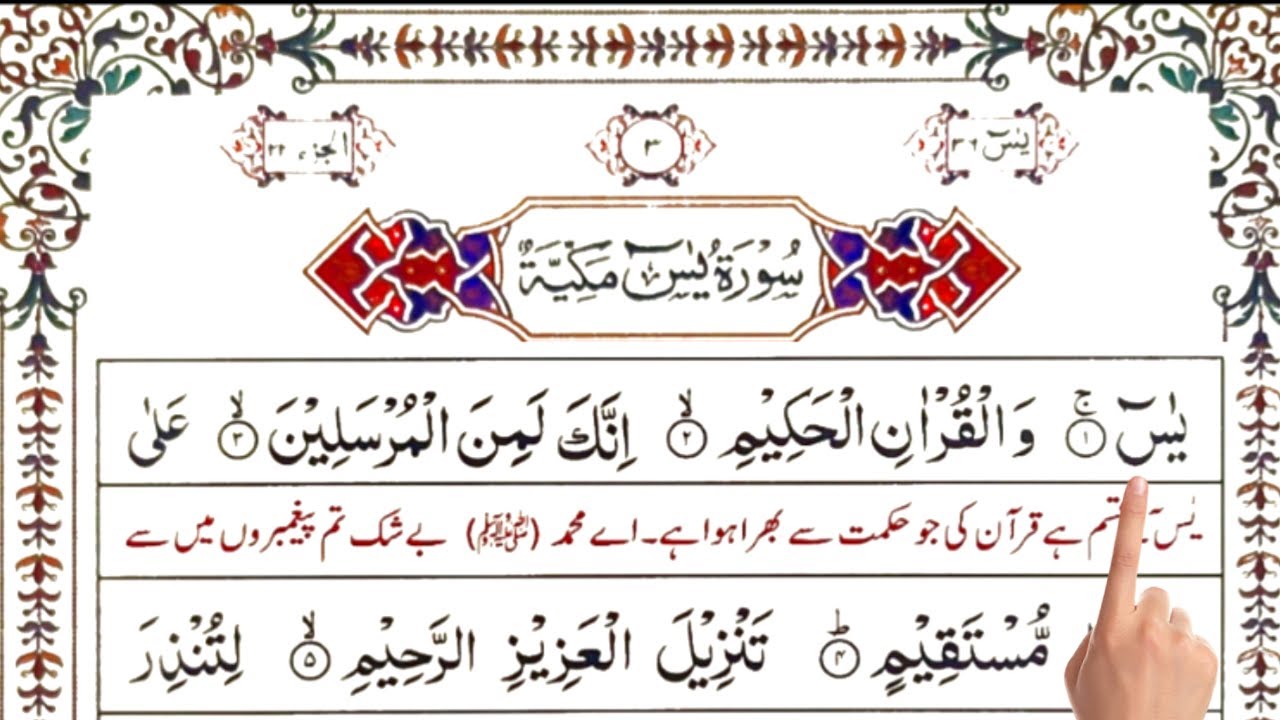 یٰسٓ ٣٦
٣
الجزء ٢٢
سُوْرَةُ یٰسٓ مَکِّیَّةٌ
یٰسٓ ۚ ﴿١﴾ وَ الْقُرْاٰنِ الْحَکِیْمِ ۙ ﴿٢﴾ اِنَّکَ لَمِنَ الْمُرْسَلِیْنَ ۙ ﴿٣﴾ عَلٰی
یٰسٓ قسم ہے قرآن کی جو حکمت سے بھرا ہوا ہے۔ اے محمد (ﷺ) بے شک تم پیغمبروں میں سے
مُّسْتَقِیْمٍ ؕ ﴿٤﴾ تَنْزِیْلَ الْعَزِیْزِ الرَّحِیْمِ ۙ ﴿٥﴾ لِتُنْذِرَ